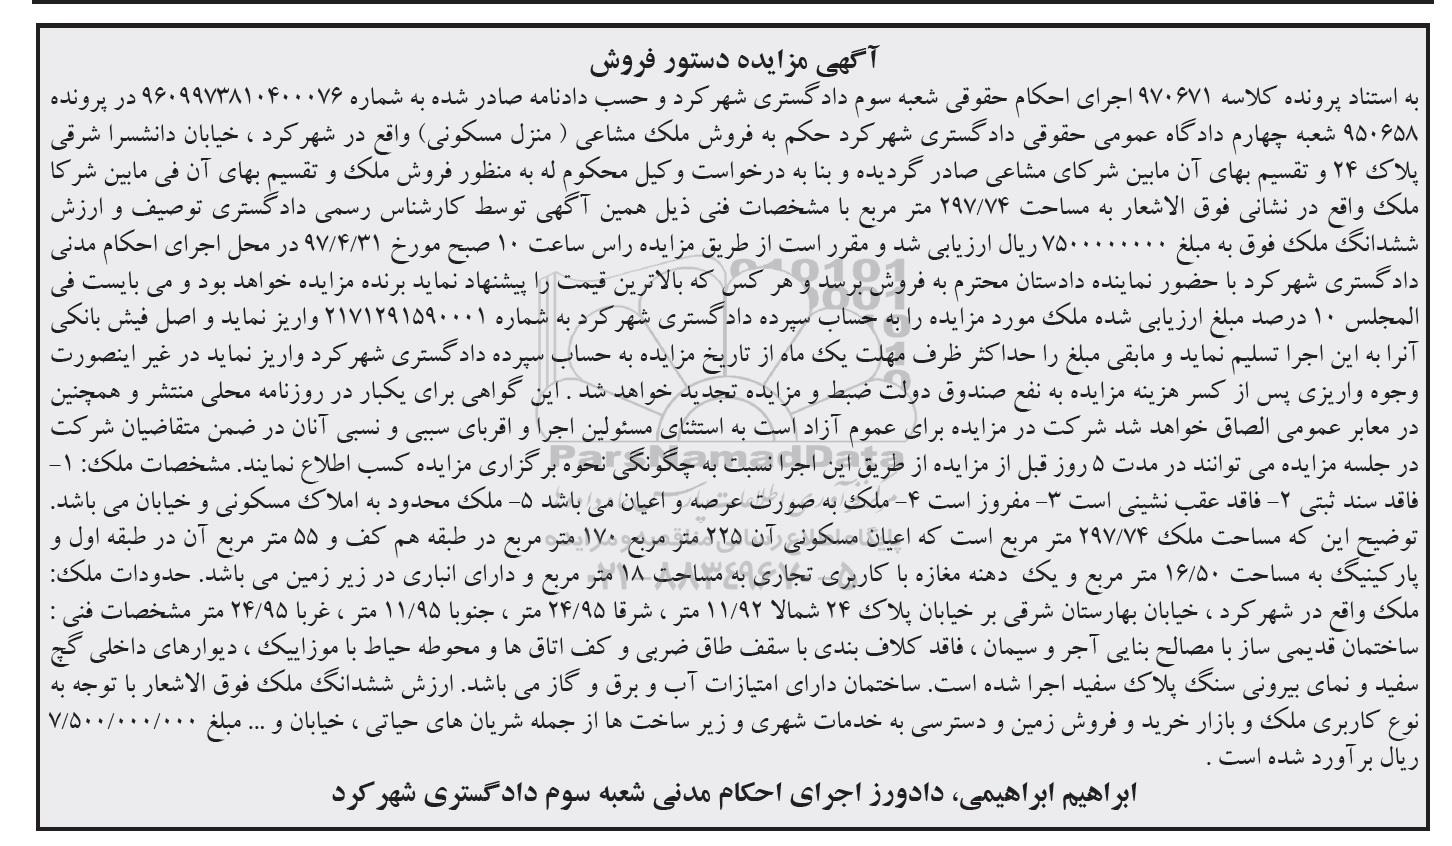 آگهی مزایده دستور فروش
به استناد پرونده کلاسه ۹۷۰۶۷۱ اجرای احکام حقوقی شعبه سوم دادگستری شهرکرد و حسب دادنامه صادر شده به شماره ۹۶۰۹۹۷۳۸۱۰۴۰۰۰۷۶ در پرونده
۹۵۰۶۵۸ شعبه چهارم دادگاه عمومی حقوقی دادگستری شهرکرد حکم به فروش ملک مشاعی ( منزل مسکونی) واقع در شهرکرد ، خیابان دانشسرا شرقی
پلاک ۲۴ و تقسیم بهای آن مابین شرکای مشاعی صادر گردیده و بنا به درخواست وکیل محکوم له به منظور فروش ملک و تقسیم بهای آن فی مابین شرکا
ملک واقع در نشانی فوق الاشعار به مساحت ۲۹۷/۷۴ متر مربع با مشخصات فنی ذیل همین آگهی توسط کارشناس رسمی دادگستری توصیف و ارزش
ششدانگ ملک فوق به مبلغ ۷۵۰۰۰۰۰۰۰۰ ریال ارزیابی شد و مقرر است از طریق مزایده راس ساعت ۱۰ صبح مورخ ۹۷/۴/۳۱ در محل اجرای احکام مدنی
دادگستری شهرکرد با حضور نماینده دادستان محترم به فروش برسد و هر کس که بالاترین قیمت را پیشنهاد نماید برنده مزایده خواهد بود و می بایست فی
المجلس ۱۰ درصد مبلغ ارزیابی شده ملک مورد مزایده را به حساب سپرده دادگستری شهرکرد به شماره ۲۱۷۱۲۹۱۵۹۰۰۰۱ واریز نماید و اصل فیش بانکی
آنرا به این اجرا تسلیم نماید و مابقی مبلغ را حداکثر ظرف مهلت یک ماه از تاریخ مزایده به حساب سپرده دادگستری شهرکرد واریز نماید در غیر اینصورت
وجوه واریزی پس از کسر هزینه مزایده به نفع صندوق دولت ضبط و مزایده تجدید خواهد شد . این گواهی برای یکبار در روزنامه محلی منتشر و همچنین
در معابر عمومی الصاق خواهد شد شرکت در مزایده برای عموم آزاد است به استثنای مسئولین اجرا و اقربای سببی و نسبی آنان در ضمن متقاضیان شرکت
در جلسه مزایده می توانند در مدت ۵ روز قبل از مزایده از طریق این اجرا نسبت به چگونگی نحوه برگزاری مزایده کسب اطلاع نمایند. مشخصات ملک: ۱-
فاقد سند ثبتی ۲- فاقد عقب نشینی است ۳- مفروز است ۴- ملک به صورت عرصه و اعیان می باشد ۵- ملک محدود به املاک مسکونی و خیابان می باشد.
توضیح این که مساحت ملک ۲۹۷/۷۴ متر مربع است که اعیان مسکونی آن ۲۲۵ متر مربع ۱۷۰ متر مربع در طبقه هم کف و ۵۵ متر مربع آن در طبقه اول و
پارکینیگ به مساحت ۱۶/۵۰ متر مربع و یک دهنه مغازه با کاربری تجاری به مساحت ۱۸ متر مربع و دارای انباری در زیر زمین می باشد. حدودات ملک:
ملک واقع در شهرکرد ، خیابان بهارستان شرقی بر خیابان پلاک ۲۴ شمالا ۱۱/۹۲ متر ، شرقا ۲۴/۹۵ متر ، جنوبا ۱۱/۹۵ متر ، غربا ۲۴/۹۵ متر مشخصات فنی :
ساختمان قدیمی ساز با مصالح بنایی آجر و سیمان ، فاقد کلاف بندی با سقف طاق ضربی و کف اتاق ها و محوطه حیاط با موزاییک ، دیوارهای داخلی گچ
سفید و نمای بیرونی سنگ پلاک سفید اجرا شده است. ساختمان دارای امتیازات آب و برق و گاز می باشد. ارزش ششدانگ ملک فوق الاشعار با توجه به
نوع کاربری ملک و بازار خرید و فروش زمین و دسترسی به خدمات شهری و زیر ساخت ها از جمله شریان های حیاتی ، خیابان و ... مبلغ ۷/۵۰۰/۰۰۰/۰۰۰
ریال برآورد شده است .
ابراهیم ابراهیمی، دادورز اجرای احکام مدنی شعبه سوم دادگستری شهرکرد
ParsNamadData
پایگاه اطلاع رسانی مناقصه و مزایده
۰۲۱-۸۸۳۴۹۶۷۰-۵